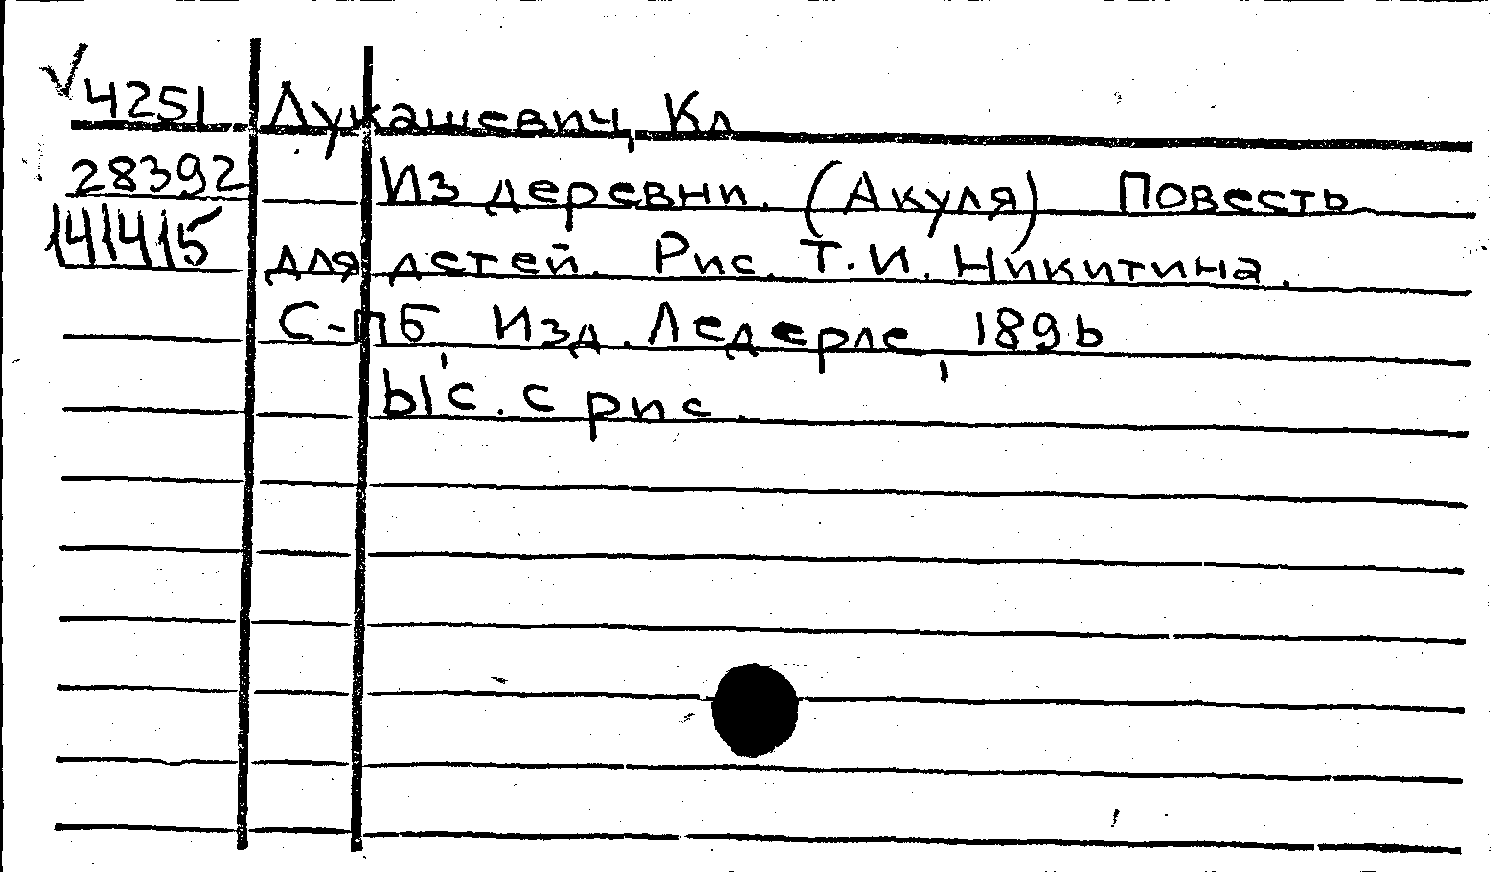 √ 4251 Лукашевич, Кл
28392 Из деревни. (Акуля) Повесть
141415 для детей. Рис. Т. И. Никитина.
С-ПБ, Изд. Ледерле, 1896
61 с. с рис.